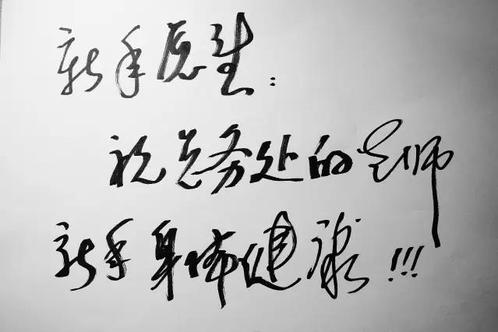 新年愿望：
祝总务处的老师
新年身体健康!!!